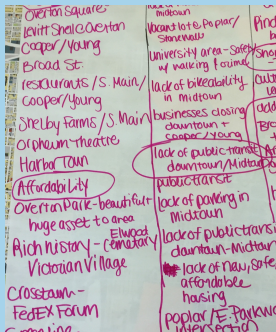 Overton Square
Levitt Shell Overton
Cooper/Young
Broad St.
restaurants/S. Main/
Cooper/Young
Shelby Farms/S. Main
Orpheum-Theatre
Harbor Town
Affordability
Overton Park-beautiful+
huge asset to area
Rich history- Elwood
Cemetary
Victorian Village
Crosstown-
FedEx Forum
midtown
vacant lot @ Poplar/
Stonewall
university area-Safety
w/ walking & crime
lack of bikeability
in midtown
businesses closing
downtown +
Cooper/Young
lack of public transit
downtown/Midtown
public transit
lack of parking in
Midtown
lack of public transit
downtown-Midtown
lack of new, safe,
affordable
housing
poplar/E. Parkway